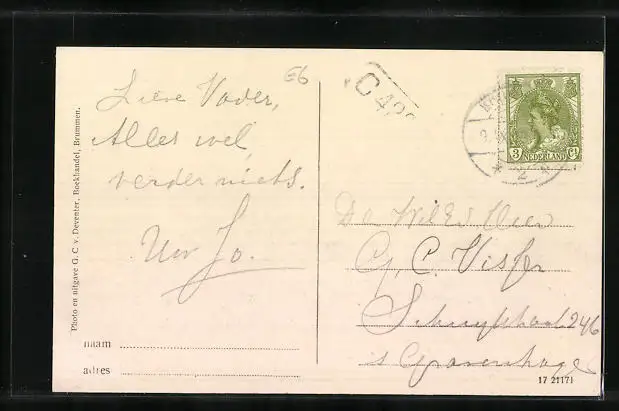 E6
Lieve Vader,
Alles wel,
verder niets.
Uw Jo.
Photo en uitgave G. C v. Deventer, Boekhandel, Brummen.
naam
adres
C 42
3 NEDERLAND Ct
2
De WelEd Heer
G. C. Visser
Schuytstraat 246
s Gravenhage
17 21171